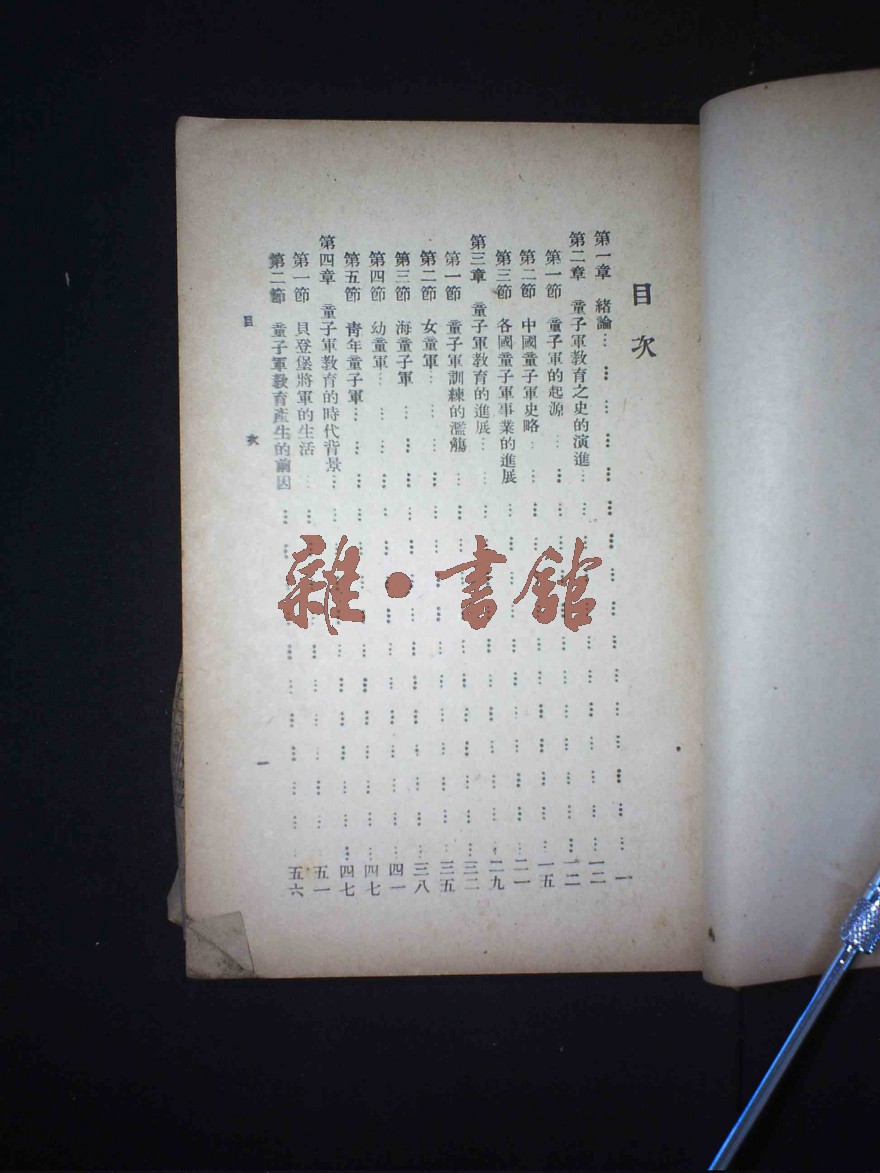 目次
第一章 緒論……………………………………一
第二章 童子軍教育之史的演進……………………一二
第一節 童子軍的起源……………………………一二
第二節 中國童子軍史略…………………………一五
第三節 各國童子軍事業的進展……………………二一
第三章 童子軍教育的進展…………………………二九
第一節 童子軍訓練的濫觴…………………………三二
第二節 女童軍……………………………………三五
第三節 海童子軍…………………………………三八
第四節 幼童軍……………………………………四一
第五節 青年童子軍………………………………四七
第四章 童子軍教育的時代背景……………………四七
第一節 貝登堡將軍的生活…………………………五一
第二節 童子軍教育產生的前因……………………五六
目次 一
雜·書館